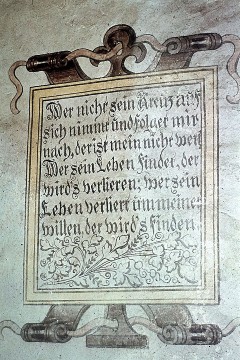 Wer nicht sein Kreuz auf
sich nimmt und folget mir
nach, der ist mein nicht wert
Wer sein Leben findet, der
wird's verlieren; wer sein
Leben verliert um meinet
willen, der wird's finden.